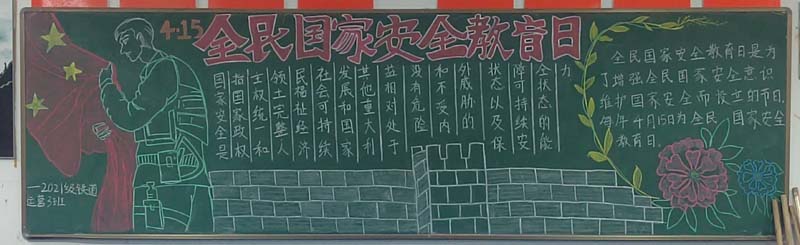 4·15
全民国家安全教育日
国家安全是
指国家政权
主权统一和
领土完整人
民福祉经济
社会可持续
发展和国家
其他重大利
益相对处于
没有危险
和不受内
外威胁的
状态以及保
障可持续安
全状态的能
力
全民国家安全教育日是为
了增强全民国家安全意识
维护国家安全而设立的节日.
每年4月15日为全民 国家安全
教育日.
—2021级铁道
运营3班